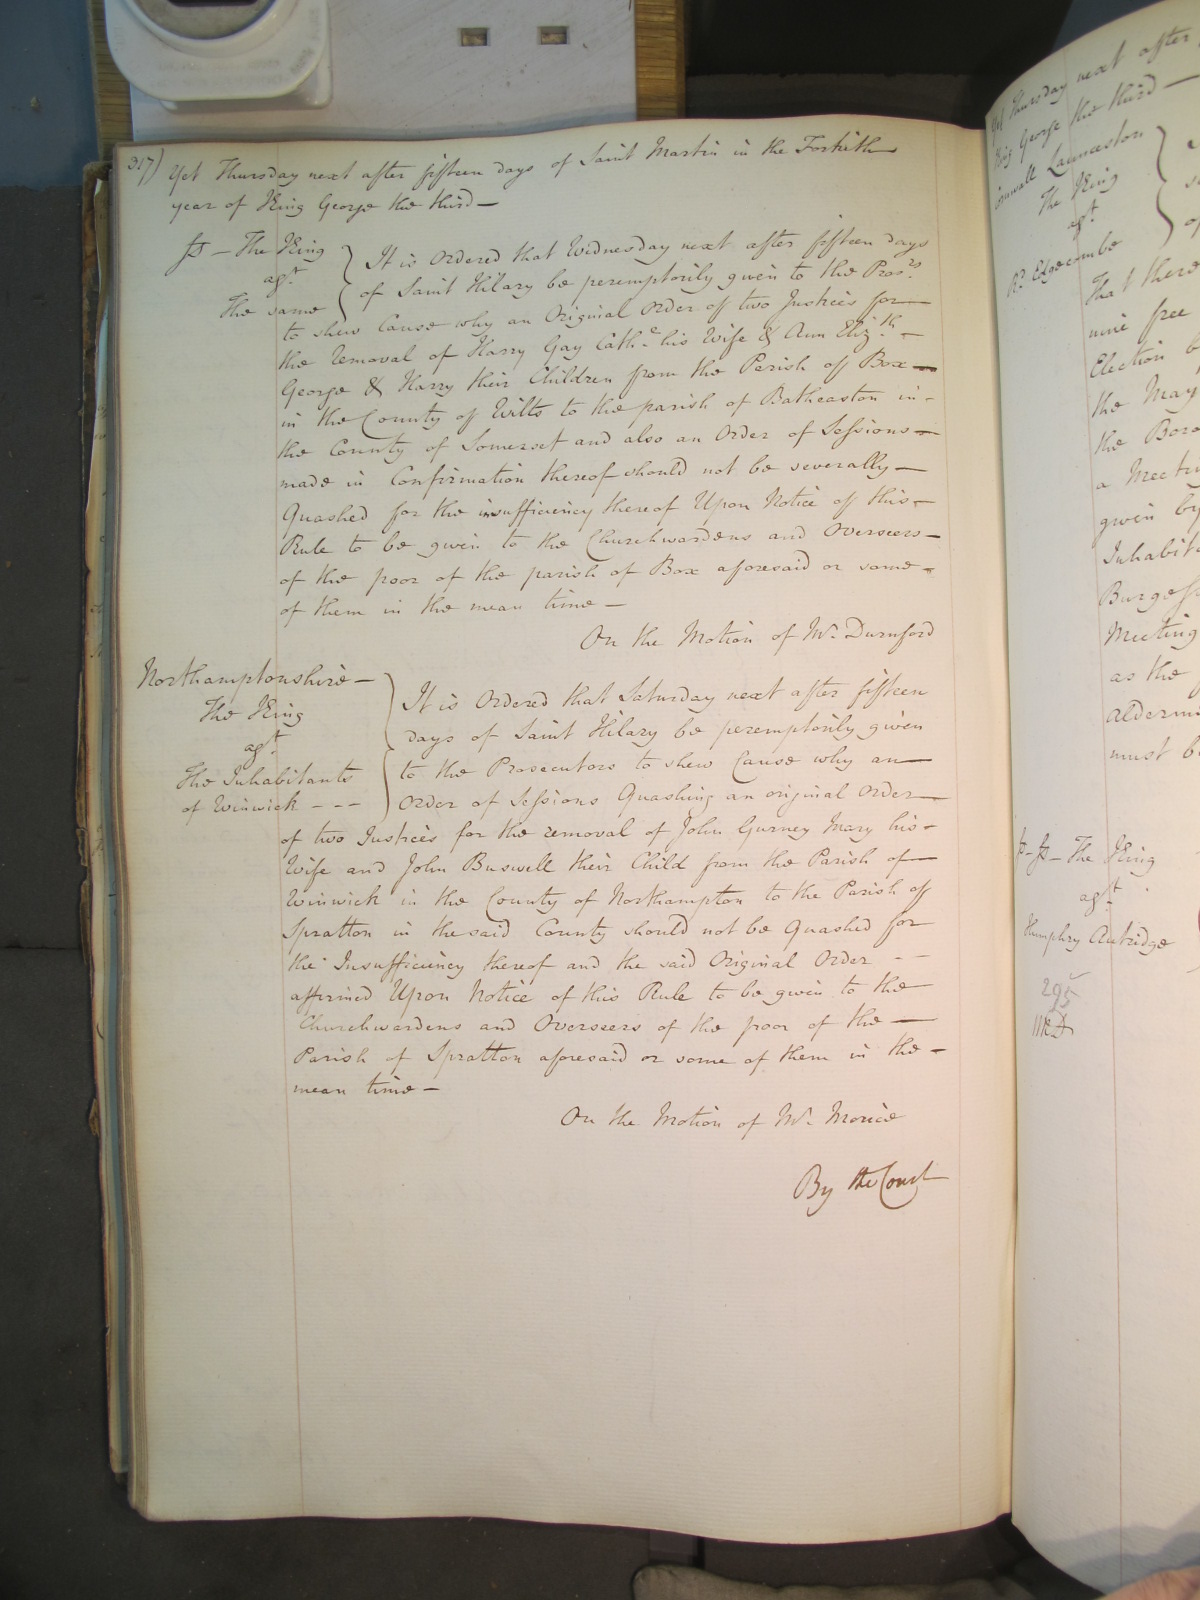 317)
Yet Thursday next after fifteen days of Saint Martin in the Fortieth
year of King George the third —
The King
agt.
The same
It is Ordered that Wednesday next after fifteen days
of Saint Hilary be peremptorily given to the Prosrs.
to shew Cause why an Original Order of two Justices for —
the removal of Harry Gay Cathe. his Wife & Ann Elizth. —
George & Harry their Children from the Parish of Box —
in the County of Wilts to the parish of Batheaston in -
the County of Somerset and also an Order of Sessions —
made in Confirmation thereof should not be severally —
Quashed for the insufficiency thereof Upon Notice of this —
Rule to be given to the Churchwardens and Overseers —
of the poor of the parish of Box aforesaid or some —
of them in the mean time —
On the Motion of Mr. Durnford
Northamptonshire —
The King
agt.
The Inhabitants
of Winwick - - -
It is Ordered that Saturday next after fifteen
days of Saint Hilary be peremptorily given
to the Prosecutors to shew Cause why an —
Order of Sessions Quashing an original Order —
of two Justices for the removal of John Gurney Mary his -
Wife and John Buswell their Child from the Parish of —
Winwick in the County of Northampton to the Parish of
Spratton in the said County should not be Quashed for
the Insufficiency thereof and the said Original Order - -
affirmed Upon Notice of this Rule to be given to the
Churchwardens and Overseers of the poor of the —
Parish of Spratton aforesaid or some of them in the —
mean time —
On the Motion of Mr. Morice
By the Court
Yet Thursday next after
King George the third —
Cornwall Launceston
The King
agt.
Rd. Edgecombe
That there
nine free
Election b
the May
the Boro
a Meeti
given by
Inhabit
Burgess
Meeting
as the
alderm
must b
The King
agt.
Humphry Autridge